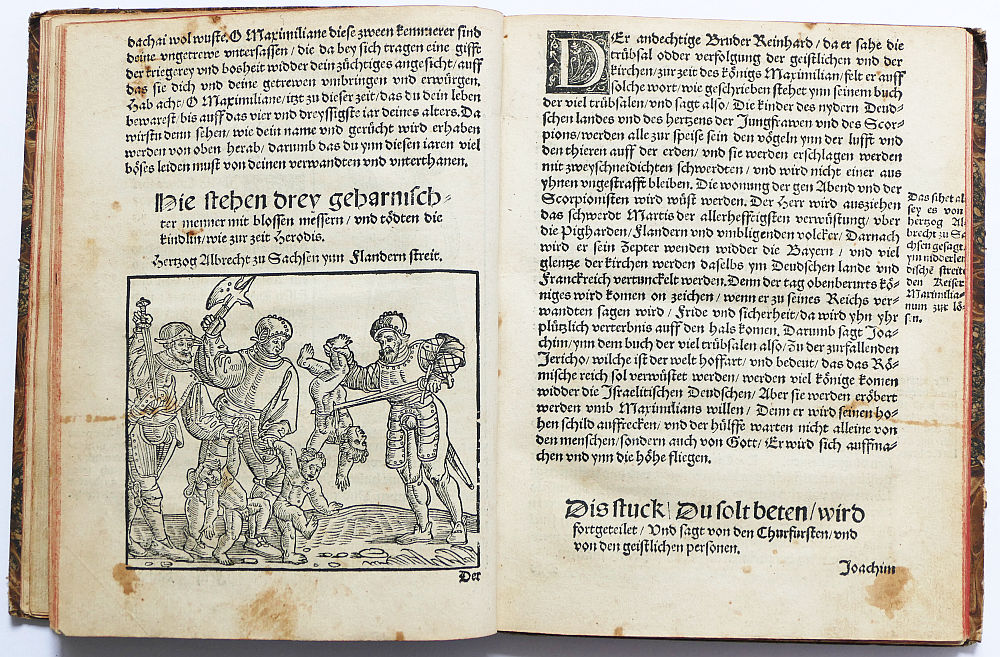 dachai wol wuste. O Maximiliane diese zween kemmerer sind
deine ungetrewe untersassen / die da bey sich tragen eine gifft
der kriegerey und bosheit widder dein züchtiges angesicht / auff
das sie dich und deine getrewen umbringen und erwürgen.
Hab acht / O Maximiliane / itzt zu dieser zeit / das du dein leben
bewarest bis auff das vier und dreyssigste iar deines alters. Da
wirstu denn sehen / wie dein name und gerücht wird erhaben
werden von oben herab / darumb das du ynn diesen iaren viel
böses leiden must von deinen verwandten und unterthanen.
Hie stehen drey geharnisch-
ter menner mit blossen messern / und tödten die
kindlin / wie zur zeit Herodis.
Hertzog Albrecht zu Sachsen ynn Flandern streit.
Der
DEr andechtige Bruder Reinhard / da er sahe die
trübsal odder verfolgung der geistlichen und der
kirchen / zur zeit des königs Maximilian / felt er auff
solche wort / wie geschrieben stehet ynn seinem buch
der viel trübsalen / und sagt also / Die kinder des nydern Deud-
schen landes und des hertzens der Jungfrawen und des Scor-
pions / werden alle zur speise sein den vögeln ynn der lufft und
den thieren auff der erden / und sie werden erschlagen werden
mit zweyschneidichten schwerdten / und wird nicht einer aus
yhnen ungestrafft bleiben. Die wonung der gen Abend und der
Scorpionisten wird wüst werden. Der Herr wird ausziehen
das schwerdt Martis der allerhefftigsten verwüstung / uber
die Pigharden / Flandern und umbligenden volcker / Darnach
wird er sein Zepter wenden widder die Bayern / und viel
glentze der kirchen werden daselbs ym Deudschen lande und
Franckreich vertunckelt werden. Denn der tag obenberurts kö-
niges wird komen on zeichen / wenn er zu seines Reichs ver-
wandten sagen wird / Fride und sicherheit / da wird yhn yhr
plützlich verterbnis auff den hals komen. Darumb sagt Joa-
chim / ynn dem buch der viel trübsalen also / Zu der zurfallenden
Jericho / wilche ist der welt hoffart / und bedeut / das das Rö-
mische reich sol verwüstet werden / werden viel könige komen
widder die Israelitischen Deudschen / Aber sie werden eröbert
werden umb Maximilians willen / Denn er wird seinen ho-
hen schild auffrecken / und der hülffe warten nicht alleine von
den menschen / sondern auch von Gott / Er wird sich auffma-
chen und ynn die höhe fliegen.
Das sihet als
sey es von
hertzog Al-
brecht zu Sa-
chsen gesagt
ym nidderlen
dischē streite
den Keiser
Maximilia-
num zur lö-
sen.
Dis stuck / Du solt beten / wird
fortgeteilet / Und sagt von den Churfursten / und
von den geistlichen personen.
Joachim